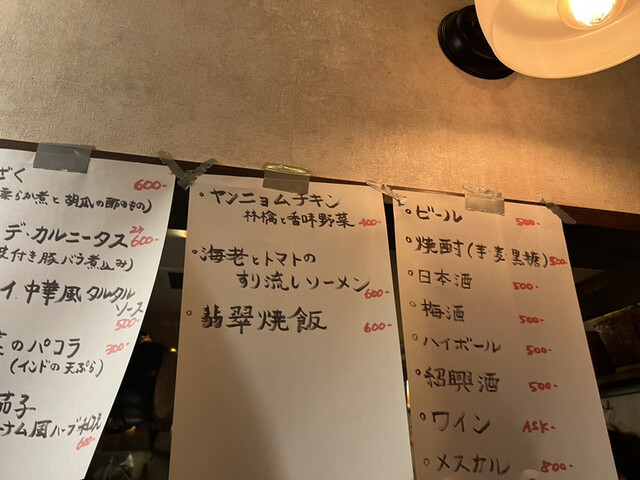 ざく
柔らか煮と胡瓜の酢のもの)
600-
デ・カルニータス
2P
600-
皮付き豚バラ煮込み)
イ 中華風タルタル
ソース
500-
のパコラ
300-
(インドの天ぷら)
茄子
ナム風ハーブ
600-
・ヤンニョムチキン
林檎と香味野菜
400-
・海老とトマトの
すり流しソーメン
600-
・翡翠焼飯
600-
・ビール
500-
・焼酎(芋 麦 黒糖)
500-
・日本酒
500-
・梅酒
500-
・ハイボール
500-
・紹興酒
500-
・ワイン
ASK-
・メスカル
800-